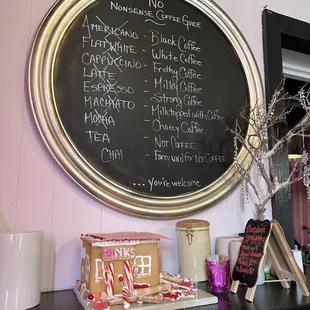 NO
NONSENSE COFFEE GUIDE
AMERICANO - Black Coffee
FLAT WHITE - White Coffee
CAPPUCCINO - Frothy Coffee
LATTE - Milky Coffee
ESPRESSO - Strong Coffee
MACHIATO - Milk topped with Coffee
MOCHA - Choccy Coffee
TEA - NOT COFFEE
CHAI - Fancy word for NON COFFEE
...you're welcome
PINKS